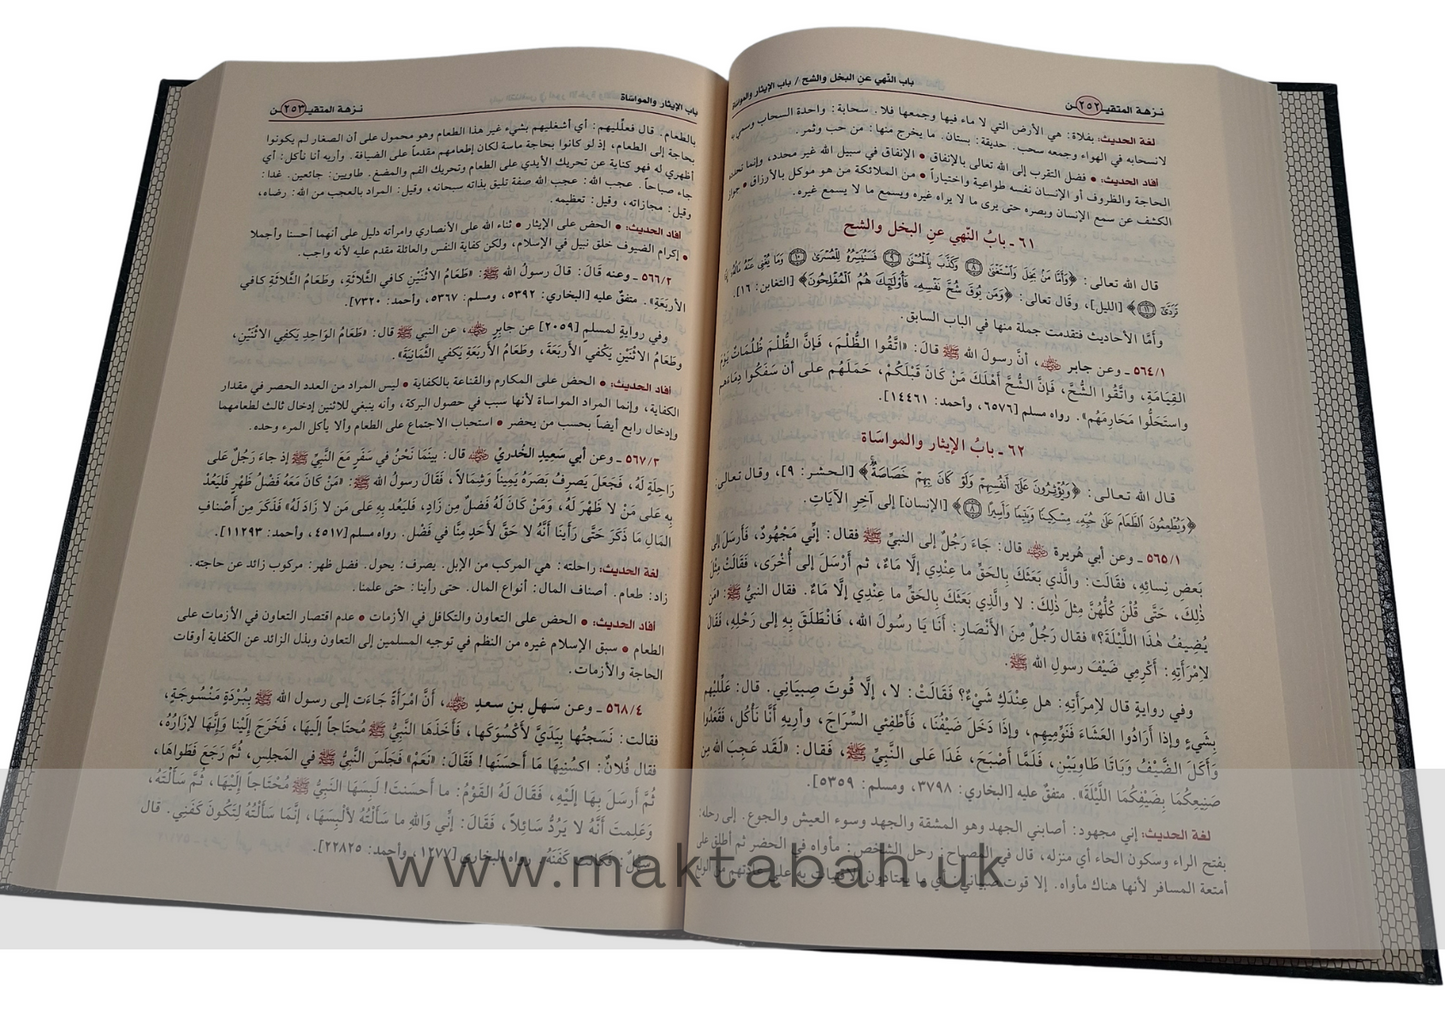 نزهة المتقين ٢٥٢
باب النّهي عن البخل والشح / باب الإيثار والمواساة
لغة الحديث: بفلاة: هي الأرض التي لا ماء فيها وجمعها فلا. سحابة: واحدة السحاب وسمي
لانسحابه في الهواء وجمعه سحب. حديقة: بستان. ما يخرج منها: من حب وثمر.
أفاد الحديث: • فضل التقرب إلى الله تعالى بالإنفاق • الإنفاق في سبيل الله غير محدد، وإنما تحدده
الحاجة والظروف أو الإنسان نفسه طواعية واختياراً • من الملائكة من هو موكل بالأرزاق • جواز
الكشف عن سمع الإنسان وبصره حتى يرى ما لا يراه غيره ويسمع ما لا يسمع غيره.
٦١ ـ بابُ النّهي عنِ البخل والشح
قال الله تعالى: ﴿وَأَمَّا مَنْ بَخِلَ وَاسْتَغْنَىٰ ﴿٨﴾ وَكَذَّبَ بِالْحُسْنَىٰ ﴿٩﴾ فَسَنُيَسِّرُهُ لِلْعُسْرَىٰ ﴿١٠﴾ وَمَا يُغْنِي عَنْهُ مَالُهُ إِذَا
تَرَدَّىٰ ﴿١١﴾﴾ [الليل]، وقال تعالى: ﴿وَمَنْ يُوقَ شُحَّ نَفْسِهِ فَأُولَٰئِكَ هُمُ الْمُفْلِحُونَ﴾ [التغابن: ١٦].
وأمَّا الأحاديث فتقدمت جملة منها في الباب السابق.
٥٦٤/١ ـ وعن جابر رضي الله عنه، أنَّ رسولَ الله ﷺ قالَ: «اتَّقُوا الظُّلْمَ، فَإنَّ الظُّلْمَ ظُلُمَاتٌ يَوْمَ
القِيَامَةِ، واتَّقُوا الشُّحَّ، فَإنَّ الشُّحَّ أهْلَكَ مَنْ كَانَ قَبْلَكُمْ، حَمَلَهُم على أن سَفَكُوا دِمَاءهُم
واستَحَلُّوا مَحَارِمَهُم». رواه مسلم [٦٥٧٦، وأحمد: ١٤٤٦١].
٦٢ ـ بابُ الإيثار والمواسَاة
قال الله تعالى: ﴿وَيُؤْثِرُونَ عَلَىٰ أَنْفُسِهِمْ وَلَوْ كَانَ بِهِمْ خَصَاصَةٌ﴾ [الحشر: ٩]، وقال تعالى:
﴿وَيُطْعِمُونَ الطَّعَامَ عَلَىٰ حُبِّهِ مِسْكِينًا وَيَتِيمًا وَأَسِيرًا ﴿٨﴾﴾ [الإنسان] إلى آخِرِ الآيَاتِ.
٥٦٥/١ ـ وعن أبي هُريرة رضي الله عنه قال: جَاءَ رَجُلٌ إلى النبيِّ ﷺ فقال: إنِّي مَجْهُودٌ، فأرسَلَ إلى
بَعضِ نِسائِهِ، فقَالَت: والَّذي بَعَثَكَ بِالحَقِّ ما عِندِي إلَّا مَاءٌ، ثم أَرْسَلَ إلى أُخْرَى، فَقَالَتْ مِثْلَ
ذٰلِكَ، حَتَّى قُلْنَ كُلُّهُنَّ مِثلَ ذٰلِكَ: لا والَّذِي بَعَثَكَ بِالحَقِّ ما عِندِي إلَّا مَاءٌ. فقال النبيُّ ﷺ: «مَن
يُضِيفُ هٰذا اللَّيْلَةَ؟» فقال رَجُلٌ مِنَ الأَنْصَارِ: أَنَا يَا رسُولَ الله، فَانْطَلَقَ بِهِ إلى رَحْلِهِ، فَقَالَ
لامْرَأَتِهِ: أَكْرِمِي ضَيْفَ رسولِ الله ﷺ.
وفي روايةٍ قال لامرَأَتِهِ: هل عِندَكِ شَيْءٌ؟ فَقَالَتْ: لا، إلَّا قُوتَ صِبيَانِي. قال: عَلِّلِيْهِم
بِشَيءٍ وإذا أرَادُوا العَشَاءَ، فَنَوِّمِيهِم، وإذَا دَخَلَ ضَيْفُنَا، فَأَطْفِئي السِّرَاجَ، وأريهِ أنَّا نَأْكُل، فَقَعَدُوا
وَأَكَلَ الضَّيْفُ وَبَاتَا طَاوِيَيْنِ، فَلَمَّا أَصْبَحَ، غَدَا عَلى النَّبيِّ ﷺ، فَقال: «لَقَد عَجِبَ الله مِن
صَنِيعِكُمَا بِضَيْفِكُمَا اللَّيْلَةَ». متفقٌ عليه [البخاري: ٣٧٩٨، ومسلم: ٥٣٥٩].
لغة الحديث: إني مجهود: أصابني الجهد وهو المشقة والجهد وسوء العيش والجوع. إلى رحله:
بفتح الراء وسكون الحاء أي منزله، قال في المصباح: رحل الشخص: مأواه في الحضر ثم أطلق على
أمتعة المسافر لأنها هناك مأواه. إلا قوت صبياني: أي ما يعتادون الاقتيات به على عادتهم من
باب الإيثار والمواساة
نزهة المتقين ٢٥٣
بالطعام: قال فعلّليهم: أي أشغليهم بشيء غير هذا الطعام وهو محمول على أن الصغار لم يكونوا
بحاجة إلى الطعام، إذ لو كانوا بحاجة ماسة لكان إطعامهم مقدماً على الضيافة. وأريه أنا نأكل: أي
أظهري له فهو كناية عن تحريك الأيدي على الطعام وتحريك الفم والمضغ. طاويين: جائعين. غدا:
جاء صباحاً. عجب الله: عجب الله صفة تليق بذاته سبحانه، وقيل: المراد بالعجب من الله: رضاه،
وقيل: مجازاته، وقيل: تعظيمه.
أفاد الحديث: • الحض على الإيثار • ثناء الله على الأنصاري وامرأته دليل على أنهما أحسنا وأجملا
• إكرام الضيوف خلق نبيل في الإسلام، ولكن كفاية النفس والعائلة مقدم عليه لأنه واجب.
٥٦٦/٢ ـ وعنه قَالَ: قالَ رسولُ الله ﷺ: «طَعَامُ الاثْنَيْنِ كافي الثَّلاثَةِ، وطَعَامُ الثَّلاثَةِ كافي
الأربَعَةِ». متفقٌ عليه [البخاري: ٥٣٩٢، ومسلم: ٥٣٦٧، وأحمد: ٧٣٢٠].
وفي روايةٍ لمسلمٍ [٢٠٥٩] عن جابرٍ رضي الله عنه، عن النبي ﷺ قال: «طَعَامُ الوَاحِدِ يَكفِي الاثْنَيْنِ،
وَطَعَامُ الاثْنَيْنِ يَكْفِي الأَربَعَةَ، وطَعَامُ الأَربَعَةِ يَكفي الثَّمَانِيَةَ».
أفاد الحديث: • الحض على المكارم والقناعة بالكفاية • ليس المراد من العدد الحصر في مقدار
الكفاية، وإنما المراد المواساة لأنها سبب في حصول البركة، وأنه ينبغي للاثنين إدخال ثالث لطعامهما
وإدخال رابع أيضاً بحسب من يحضر • استحباب الاجتماع على الطعام وألا يأكل المرء وحده.
٥٦٧/٣ ـ وعن أبي سَعِيدٍ الخُدريِّ رضي الله عنه قال: بينَمَا نَحْنُ في سَفَرٍ مَعَ النَّبيِّ ﷺ إذ جاءَ رَجُلٌ عَلى
رَاحِلَةٍ لَهُ، فَجَعَلَ يَصرِفُ بَصَرَهُ يَمِيناً وَشِمَالاً، فَقَالَ رسولُ الله ﷺ: «مَنْ كَانَ مَعَهُ فَضْلُ ظَهْرٍ فَليَعُدْ
بِهِ عَلى مَنْ لا ظَهْرَ لَهُ، وَمَنْ كَانَ لَهُ فَضلٌ مِن زَادٍ، فَليَعُد بِهِ عَلى مَن لا زَادَ لَهُ» فَذَكَرَ مِن أَصْنافِ
المَالِ مَا ذَكَرَ حَتَّى رَأينَا أنَّهُ لا حَقَّ لأَحَدٍ مِنَّا في فَضْل. رواه مسلم [٤٥١٧، وأحمد: ١١٢٩٣].
لغة الحديث: راحلته: هي المركب من الإبل. يصرف: يحول. فضل ظهر: مركوب زائد عن حاجته.
زاد: طعام. أصناف المال: أنواع المال. حتى رأينا: حتى علمنا.
أفاد الحديث: • الحض على التعاون والتكافل في الأزمات • عدم اقتصار التعاون في الأزمات على
الطعام • سبق الإسلام غيره من النظم في توجيه المسلمين إلى التعاون وبذل الزائد عن الكفاية أوقات
الحاجة والأزمات.
٥٦٨/٤ ـ وعن سَهلِ بن سعدٍ رضي الله عنه، أَنَّ امْرَأَةً جَاءَت إلى رسول الله ﷺ بِبُرْدَةٍ مَنْسُوجَةٍ،
فقالت: نَسَجتُها بِيَدَيَّ لأَكْسُوَكَها، فَأَخَذَهَا النَّبيُّ ﷺ مُحتَاجاً إلَيهَا، فَخَرَجَ إلَيْنَا وإنَّها لإزَارُهُ،
فقال فُلانٌ: اكسُنِيهَا مَا أحسَنَها! فَقَالَ: «نَعَمْ» فَجَلَسَ النَّبيُّ ﷺ في المَجلِسِ، ثُمَّ رَجَعَ فَطَواهَا،
ثُمَّ أَرسَلَ بِهَا إلَيْهِ، فَقَالَ لَهُ القَوْمُ: ما أحسَنتَ! لَبِسَهَا النَّبيُّ ﷺ مُحْتَاجاً إلَيْهَا، ثُمَّ سَأَلْتَهُ،
وَعَلِمتَ أَنَّهُ لا يَرُدُّ سَائِلاً، فَقَالَ: إنِّي وَاللهِ ما سَألْتُهُ لألْبِسَهَا، إنَّمَا سَأَلْتُهُ لِتَكُونَ كَفَنِي. قال
سَهْلٌ: فَكَانَت كَفَنَهُ. رواه البخاري [١٢٧٧، وأحمد: ٢٢٨٢٥].
www.maktabah.uk